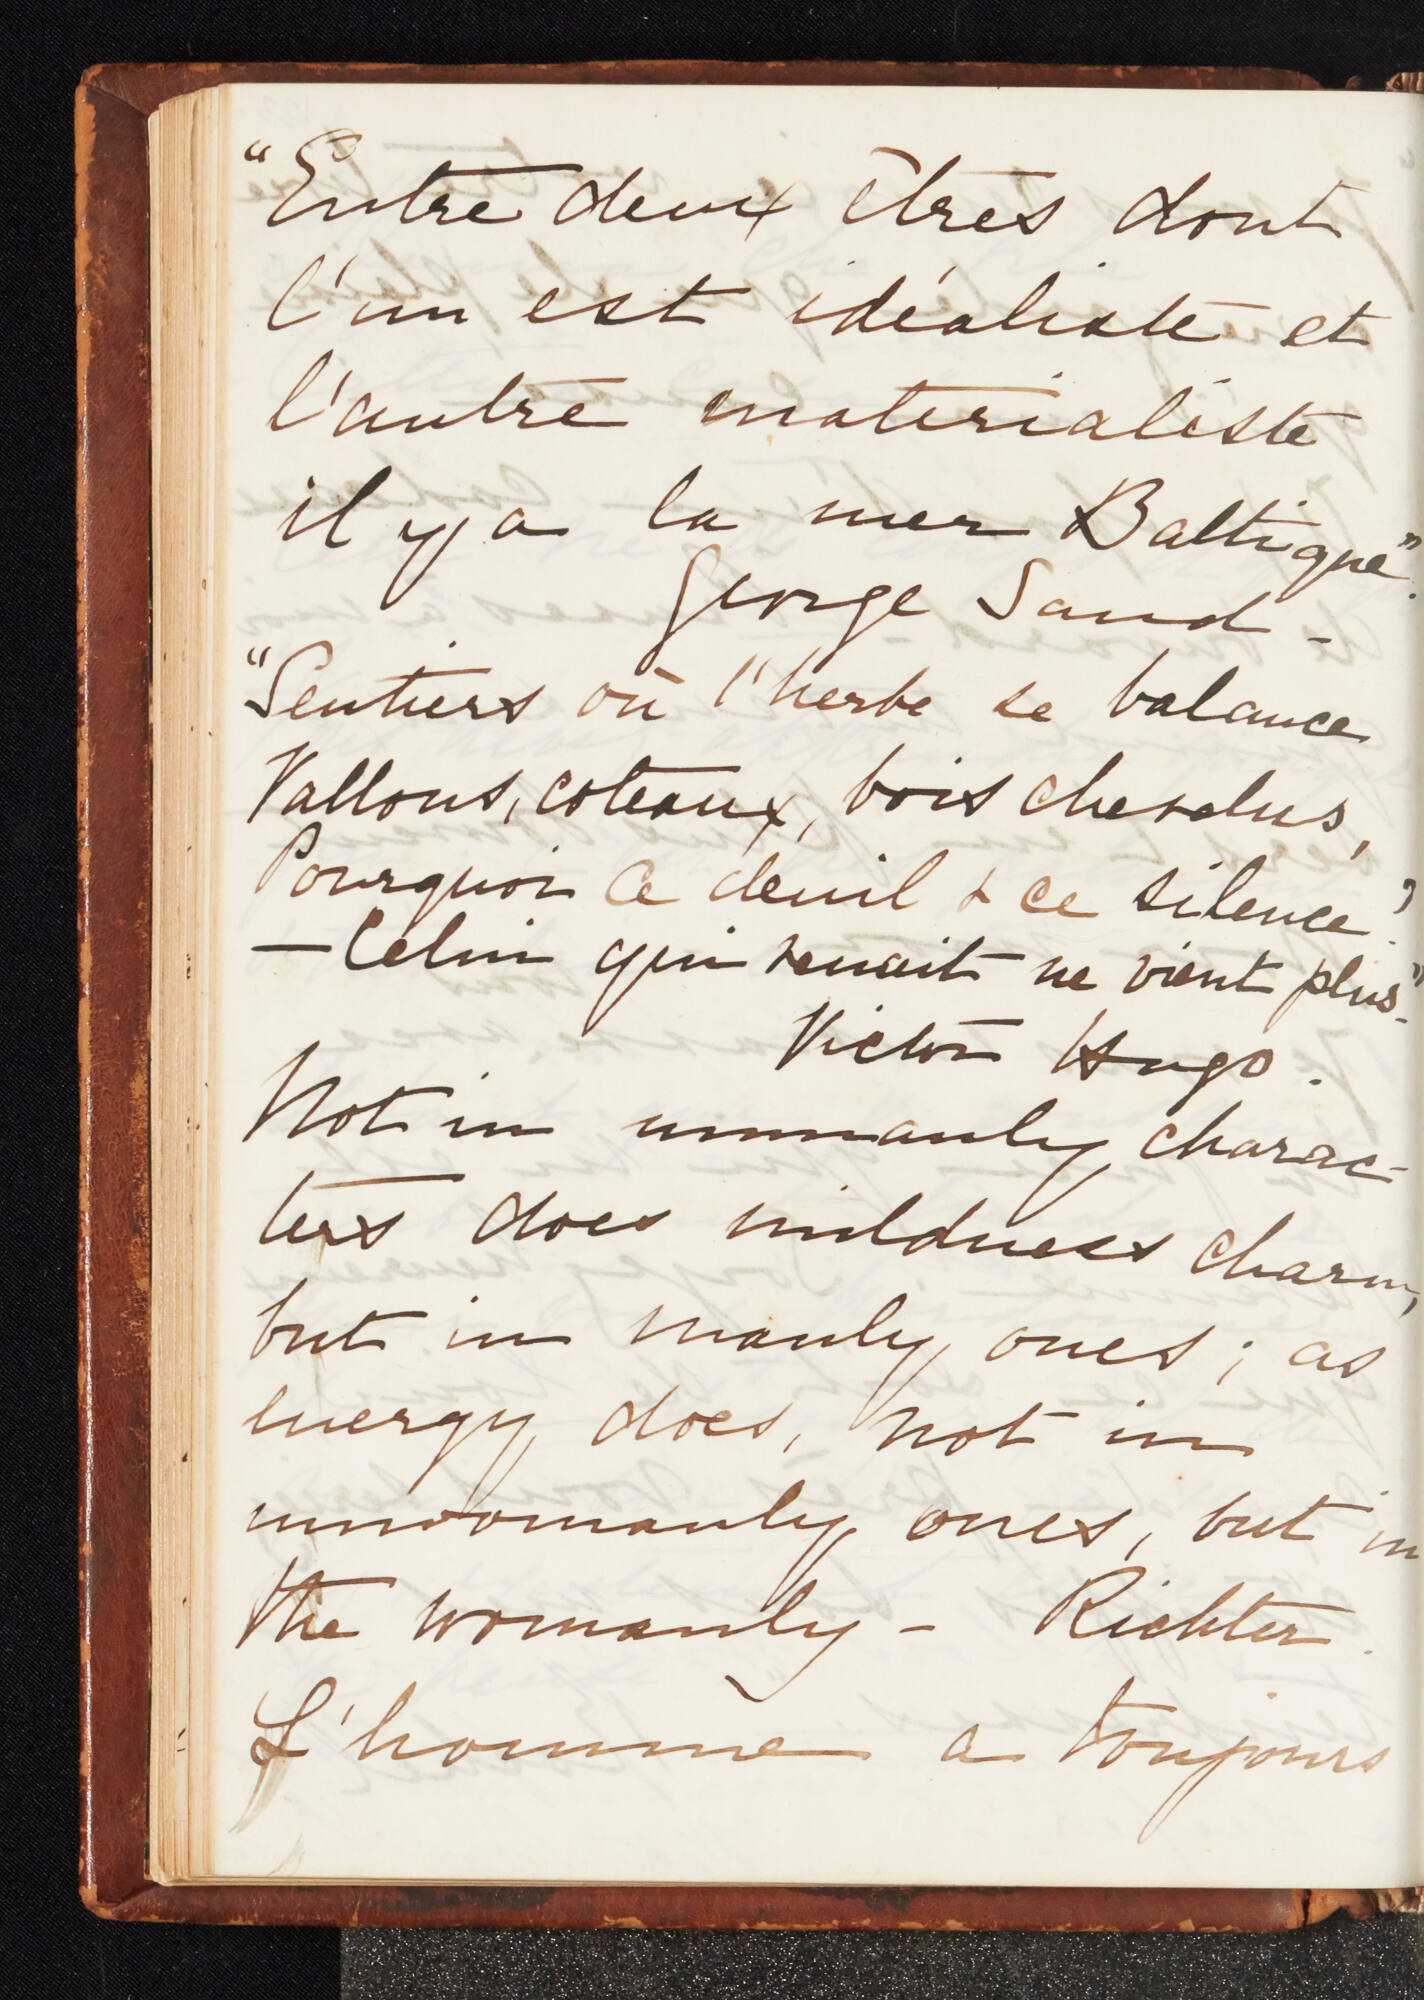 "Entre deux êtres dont
l'un est idéaliste et
l'autre materialiste
il y a la mer Baltique".
George Sand -
"Sentiers où l'herbe se balance
Vallons, coteaux, bois chevelus,
Pourquoi ce deuil & ce silence?
— Celui qui venait ne vient plus."
Victor Hugo.
Not in unmanly charac-
ters does mildness charm,
but in manly ones; as
energy does, not in
unwomanly ones, but in
the womanly - Richter.
L'homme a toujours